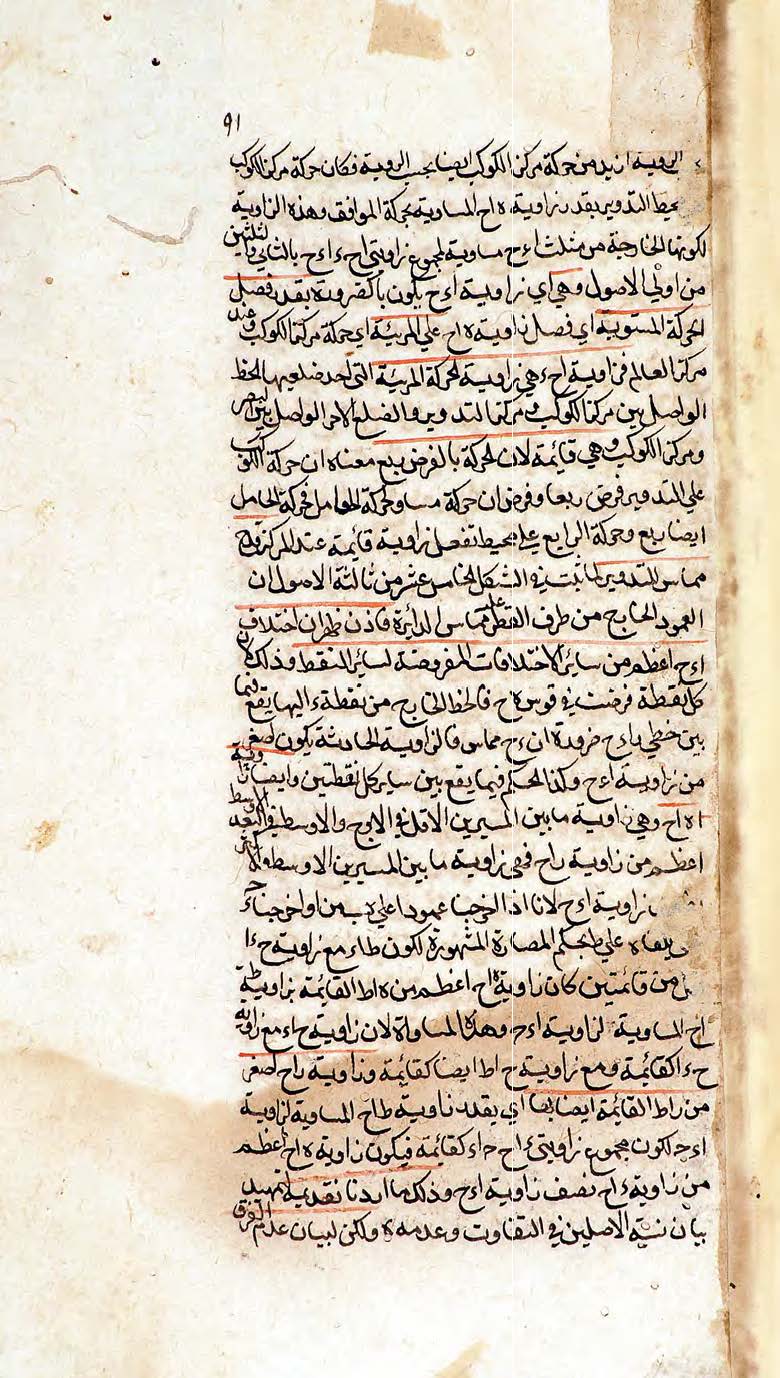 ٩١
الروية ازيد من حركة مركز الكوكب ايضا بحسب الروية فكان حركة مركز الكوكب
محيط التدوير بقدر زاوية ه اح المساوية لحركة الموافق وهذه الزاوية
لكونها الخارجة من مثلث اءح مساوية لمجموع زاويتي اح ء اءح بالثاني والثلثين
من اولي الاصول وهي اي زاوية اءح يكون بالضرورة بقدر فصل
الحركة المستوية اي فصل زاوية ه اح علي المرئية اي حركة مركز الكوكب عند
مركز العالم فزاوية احء هي زاوية الحركة المرئية التي احد ضلعيها الخط
الواصل بين مركز الكوكب و مركز التدوير والضلع الاخر الواصل بين البصر
ومركز الكوكب وهي قائمة لان الحركة بالفرض ربع معناه ان حركة الكوكب
علي التدوير فرض ربعا وفرض ان حركة مساو لحركة الحامل فحركة الحامل
ايضا ربع وحركة الرابع علي المحيط تفصل زاوية قائمة عند المركز فءح
مماس للتدوير لما ثبت في الشكل الخامس عشر من ثالثة الاصول ان
العمود الخارج من طرف القطر علي مماس الدائرة فاذن ظهر ان اختلاف
اءح اعظم من سائر الاختلافات المفروضة لسائر النقط وذلك لان
كل نقطة فرضت في قوس ه ح فالخط الخارج من نقطة ء اليها يقع فيما
بين خطي ءا ءح ضرورة ان ءح مماس فالزاوية الحادثة يكون اصغر
من زاوية اءح وكذا الحكم فيما يقع بين ساير كل نقطتين وايضا زاوية
ا ه اح وهي زاوية ما بين المسيرين الاقل في الاوج والاوسط في البعد الاوسط
اعظم من زاوية راح فهي زاوية ما بين المسيرين الاوسط والاكثر
زاوية اءح لانا اذا اخرجنا عمودا علي ه ب من ا واخرجنا ءح
يلقاه علي ط بحكم المصادرة المشهورة لكون طاء مع زاوية حءا
من قائمتين كان زاوية ه اح اعظم من ه اط القائمة بزاوية ط
اح المساوية لزاوية اءح وهذه المساواة لان زاوية حاء مع زاوية
حءا كقائمة ومع زاوية ح اط ايضا كقائمة وزاوية راح اصغر
من راط القائمة ايضا بها اي بقدر زاوية طاح المساوية لزاوية
اءح لكون مجموع زاويتي ءاح حاء كقائمة فيكون زاوية ه اح اعظم
من زاوية ءاح نصف زاوية اءح وذلك ما اردنا تقديمه لتمهيد
بيان نسبة الاصلين في التفاوت وعدمه ه ولكن لبيان عدم الفرق